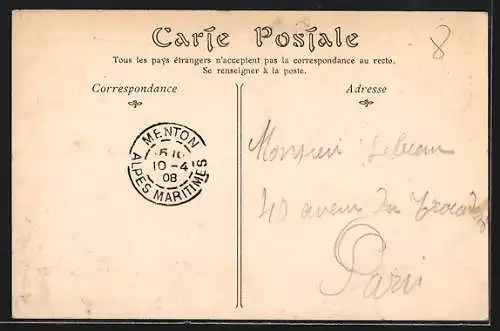 Carte Postale
8
Tous les pays étrangers n'acceptent pas la correspondance au recto.
Se renseigner à la poste.
Correspondance
Adresse
MENTON
10-4
08
ALPES MARITIMES
Monsieur
48 avenu du
Paris